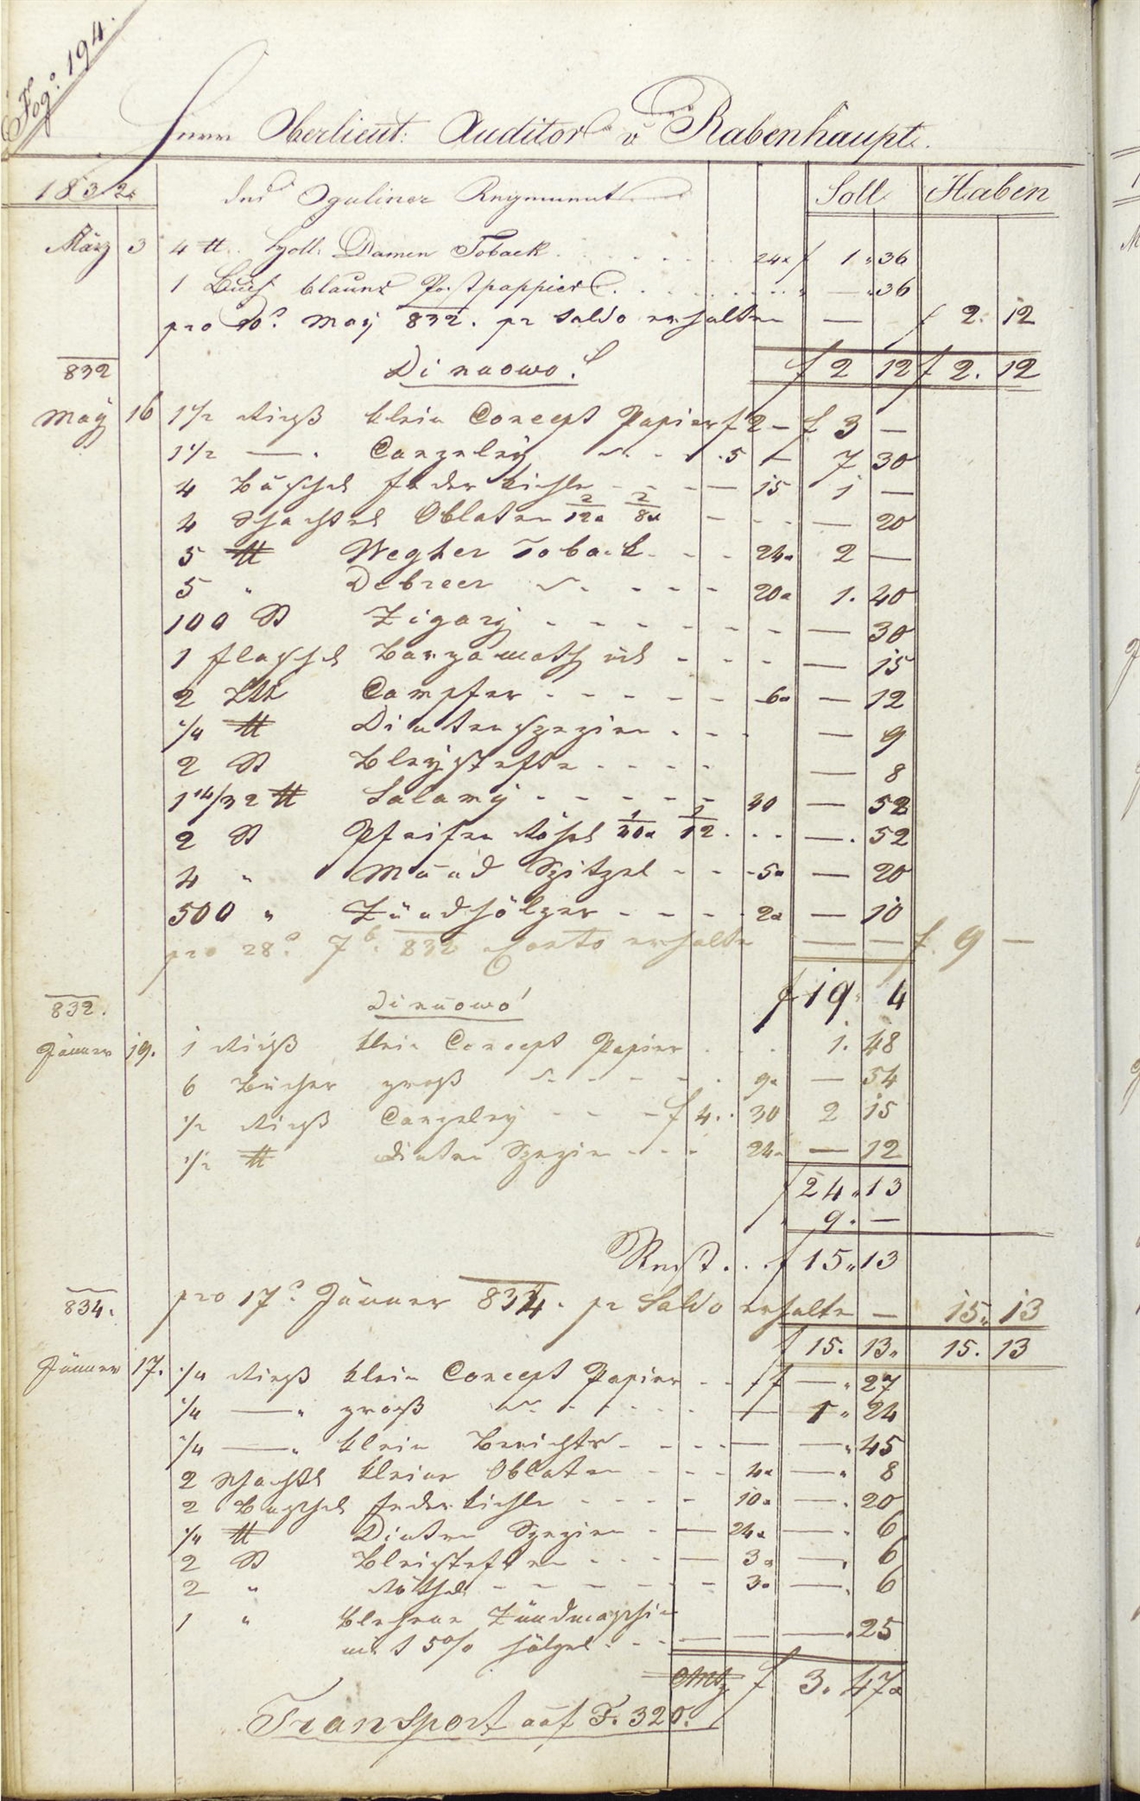 Fog: 194.
Herrn Oberlieut: Auditor v Rabenhaupt.
1832. des Oguliner Regiment Soll Haben
März 3 4 ℔ Holl: Damen Toback 24x f 1 " 36
1 Buch blaues Postpappier " — " 36
pro 10º May 832. pr Saldo erhalten — f 2. 12
f 2 12 f 2. 12
832 Dinuovo!
May 16 1 1/2 Rieß klein Concept Papier f 2 — f 3 —
1 1/2 — " Canzeley 5 — 7 30
4 Büschel Federkiehle 15 1 —
4 Schachtel Oblaten 2/12x 2/8x — 20
5 ℔ Toback 24x 2 —
5 " Debreer 20x 1. 40
100 St Zigary — 30
1 Flaschel — 15
2 Lth Campfer 6x — 12
1/4 ℔ Dintenspezien — 9
2 St Bleystefte — 8
1 14/32 ℔ Salamy 40 — 52
2 St Pfeifen Röhrl 1/40x 1/12 — 52
4 " Mund Spitzel 5x — 20
500 " Zündhölzer 2x — 10
pro 28º 7b: 832 Conto erhalte — — f. 9 —
f 19 " 4
832. Dinuovo!
Jänner 19. 1 Rieß klein Concept Papier 1. 48
6 Bücher groß 9x — 54
1/2 Rieß Canzeley f 4. 30 2 15
1/2 ℔ Dinten Spezien 24x — 12
f 24 " 13
9. —
Rest. . f 15 " 13
834. pro 17º Jänner 834. pr Saldo erhalte — 15 " 13
f 15. 13. 15. 13
Jänner 17. 1/4 Rieß klein Concept Papier f — " 27
1/4 — " groß — 1 " 24
1/4 — " klein Berichts — — " 45
2 Schachtl kleine Oblaten 4x — " 8
2 Buschel Federkiehle 10x — " 20
1/4 ℔ Dinten Spezien 24x — " 6
2 St Bleisteften 3x — " 6
2 " Röthel 3x — " 6
1 " Blecherne Zündmaschin
mit 50/0 hölzel — — " 25
f 3. 47x
Transport auf F. 320.